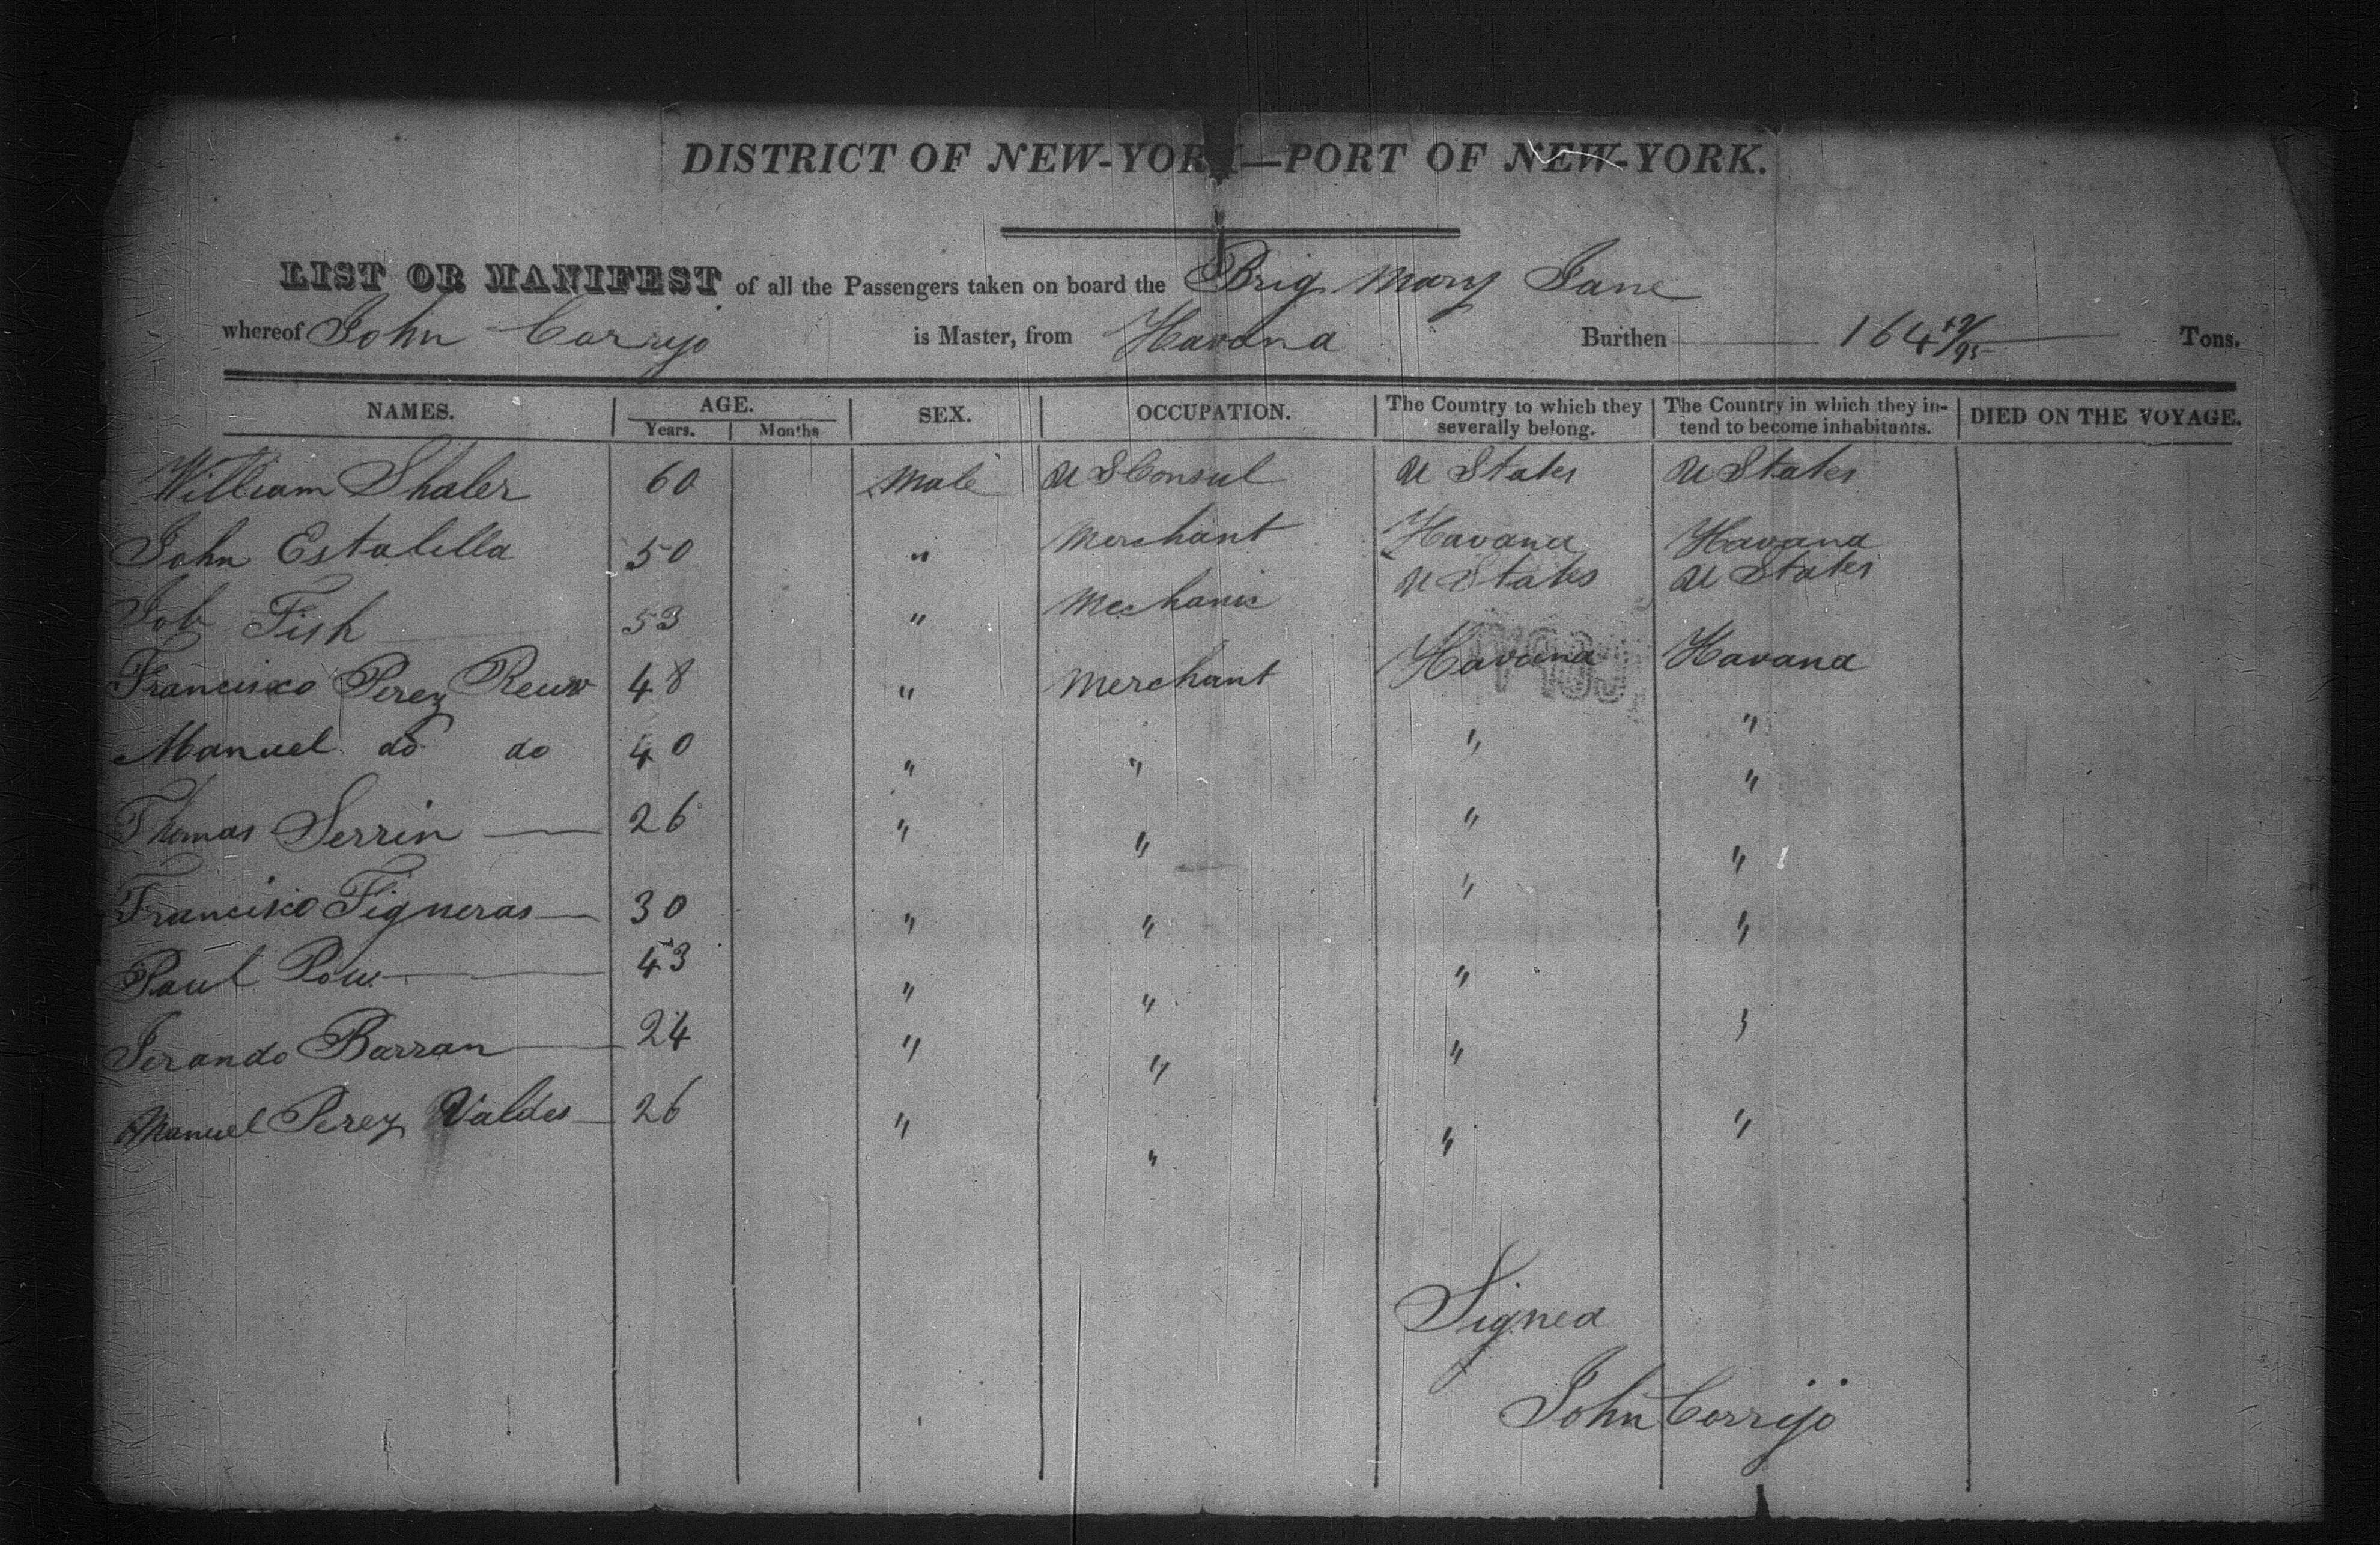 DISTRICT OF NEW-YORK—PORT OF NEW-YORK.
LIST OR MANIFEST of all the Passengers taken on board the Brig Mary Jane
whereof John Corrijo is Master, from Havana Burthen 164 /95 Tons.
NAMES. AGE. SEX. OCCUPATION. The Country to which they severally belong. The Country in which they in-tend to become inhabitants. DIED ON THE VOYAGE.
Years. Months
William Shaler 60 Male U S Consul U States U States
John Estalilla 50 " Merchant Havana Havana
Job Fish 53 " Mechanic U States U States
Francisco Perez 48 " Merchant Havana Havana
Manuel do do 40 " " " "
Thomas Serrin 26 " " " "
Francisco Figueras 30 " " " "
Paul 43 " " " "
Barran 24 " " " "
Manuel Perez Valdes 26 " " " "
Signed
John Corrijo